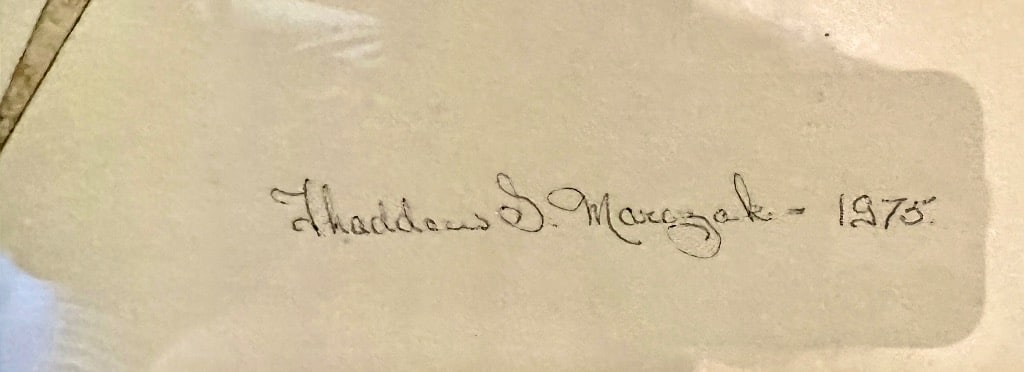 Thaddeus S. Marczak - 1975.